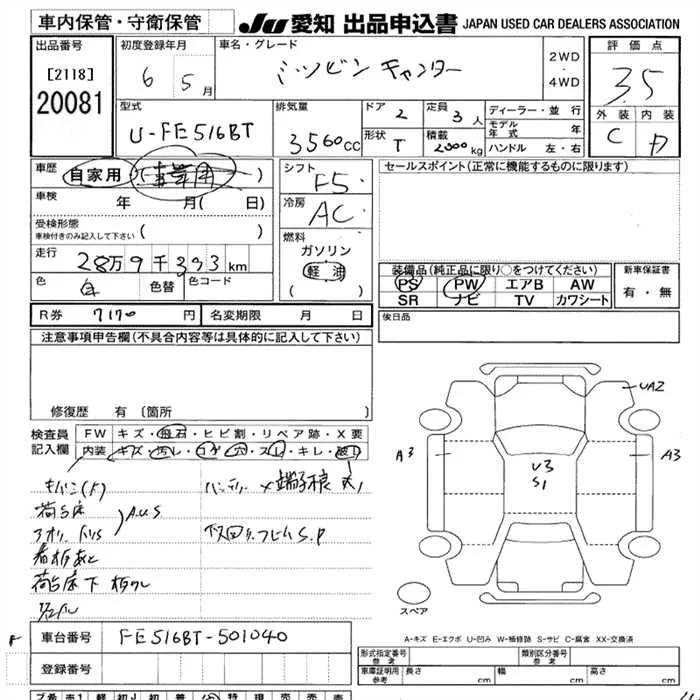 車内保管・守衛保管
JU 愛知 出品申込書 JAPAN USED CAR DEALERS ASSOCIATION
出品番号 [2118] 20081
初度登録年月 6 5月
車名・グレード ミツビシ キャンター
2WD・4WD
評価点 3.5
外装 C 内装 D
型式 U-FE516BT
排気量 3560cc
ドア 2 定員 3人
形状 T 積載 2000kg
ディーラー・並行
モデル年式 年
ハンドル 左・右
車歴 自家用 (事業用)
車検 年 月( 日)
受検形態 車検付きのみ記入して下さい ( )
走行 28万9千393km
色 白 色替 色コード
シフト F5
冷房 AC
燃料 ガソリン 軽油 ( )
セールスポイント(正常に機能するものに限ります)
装備品(純正品に限り○をつけてください)
PS PW エアB AW
SR ナビ TV カワシート
新車保証書 有・無
R券 7170円 名変期限 月 日
後日品
注意事項申告欄(不具合内容等は具体的に記入して下さい)
修復歴 有 〔箇所 〕
検査員記入欄
FW キズ・飛石・ヒビ割・リペア跡・X要
内装 キズ・汚レ・コゲ・穴・スレ・キレ・破レ
荷台床
A.U.S
S.P
看板あと
荷台床下
UA2
A3
U3
S1
A3
スペア
A-キズ E-エクボ U-凹み W-補修跡 S-サビ C-腐食 XX-交換済
車台番号 FE516BT-501040
登録番号
形式指定番号 参考 類別区分番号 参考
車庫証明用 参考 長さ cm 幅 cm 高さ cm